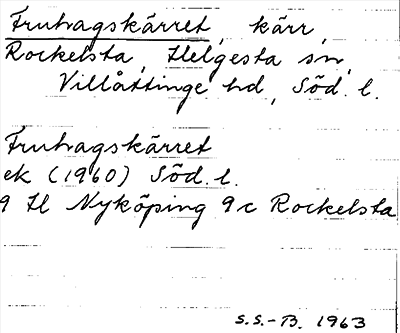 Fruhagskärret, kärr,
Rockelsta, Helgesta sn,
Villåttinge hd, Söd. l.
Fruhagskärret
ek (1960) Söd. l.
9 H Nyköping 9 c Rockelsta
S.S.-B. 1963